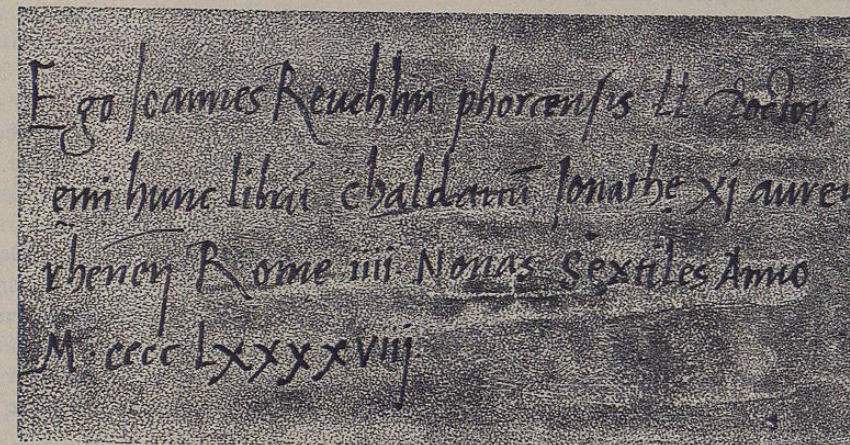 Ego Joannes Reuchlin phorcensis LL Doctor.
emi hunc librū chaldaicū Jonathę xj aureis
rhenēn Rome iiii Nonas Sextiles Anno
M. cccc LXXXXviij